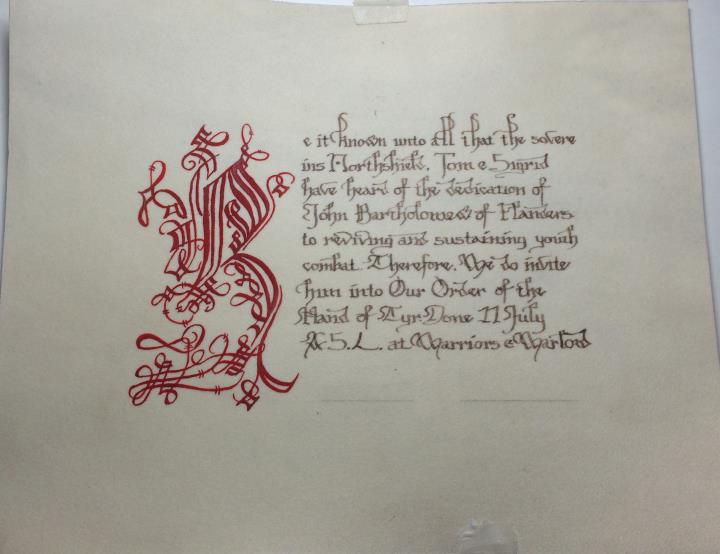 Be it known unto all that the sovere
ins Northshield, Tom e Sigrid
have heard of the dedication of
John Bartholomew of Flanders
to reviving and sustaining youth
combat. Therefore, We do invite
him into Our Order of the
Hand of Tyr. Done 11 July
A.S. L. at Warriors & Warlord